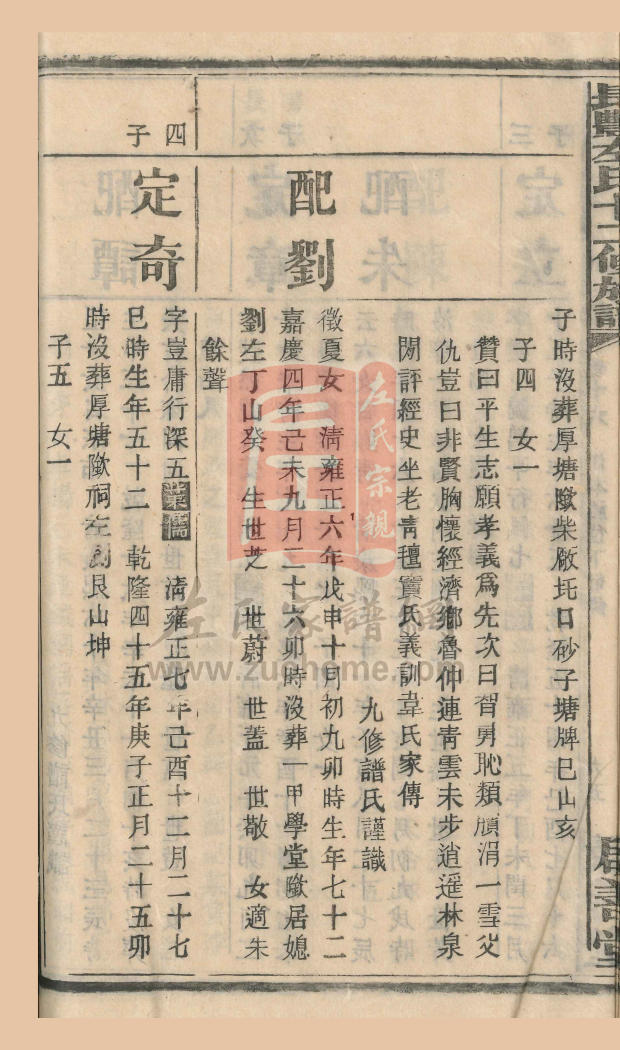 長豐左氏十二修族譜
子時沒葬厚塘墩柴廠圫口砂子塘牌巳山亥
子四 女一
贊曰平生志願孝義爲先次曰智勇耻類 涓一雪父
仇豈曰非賢胸懷經濟鄉魯仲連青雲未步逍遥林泉
閒評經史坐老青氊竇氏義訓韋氏家傳
九修譜氏謹識
配劉
徵夏女 清雍正六年戊申十月初九卯時生年七十二
嘉慶四年己未九月二十六卯時沒葬一甲學堂墩居媳
劉左丁山癸 生世芝 世蔚 世蓋 世敬 女適朱
餘聲
四子
定奇
字豈庸行深五業儒 清雍正七年己酉十二月二十七
巳時生年五十二 乾隆四十五年庚子正月二十五卯
時沒葬厚塘墩祠左 艮山坤
子五 女一
左氏宗親
左氏家譜
www.zuohome.com